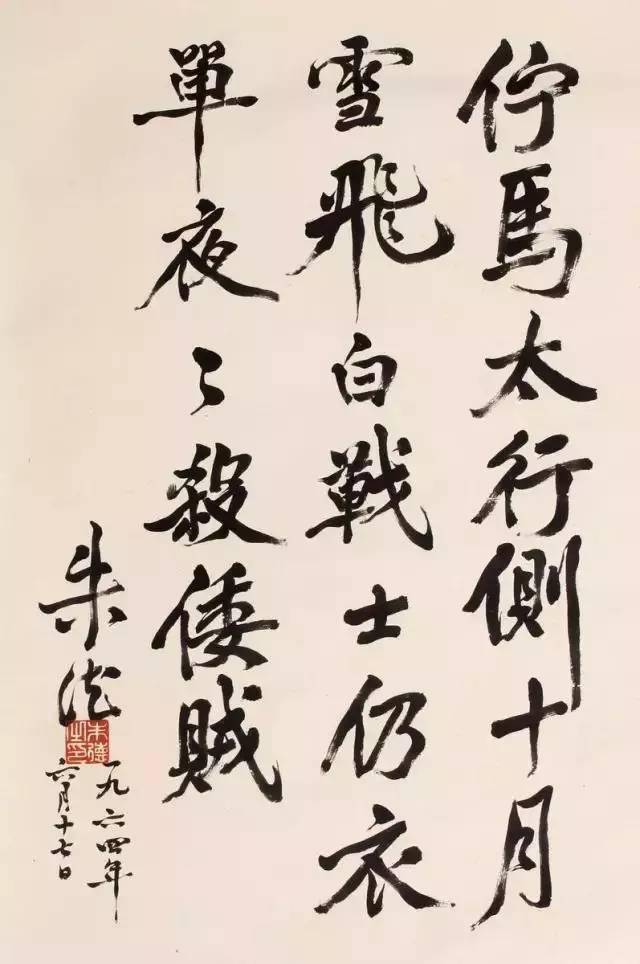 佇馬太行側十月
雪飛白戰士仍衣
單夜〻殺倭賊
朱德
朱德之印
一九六四年
六月十七日